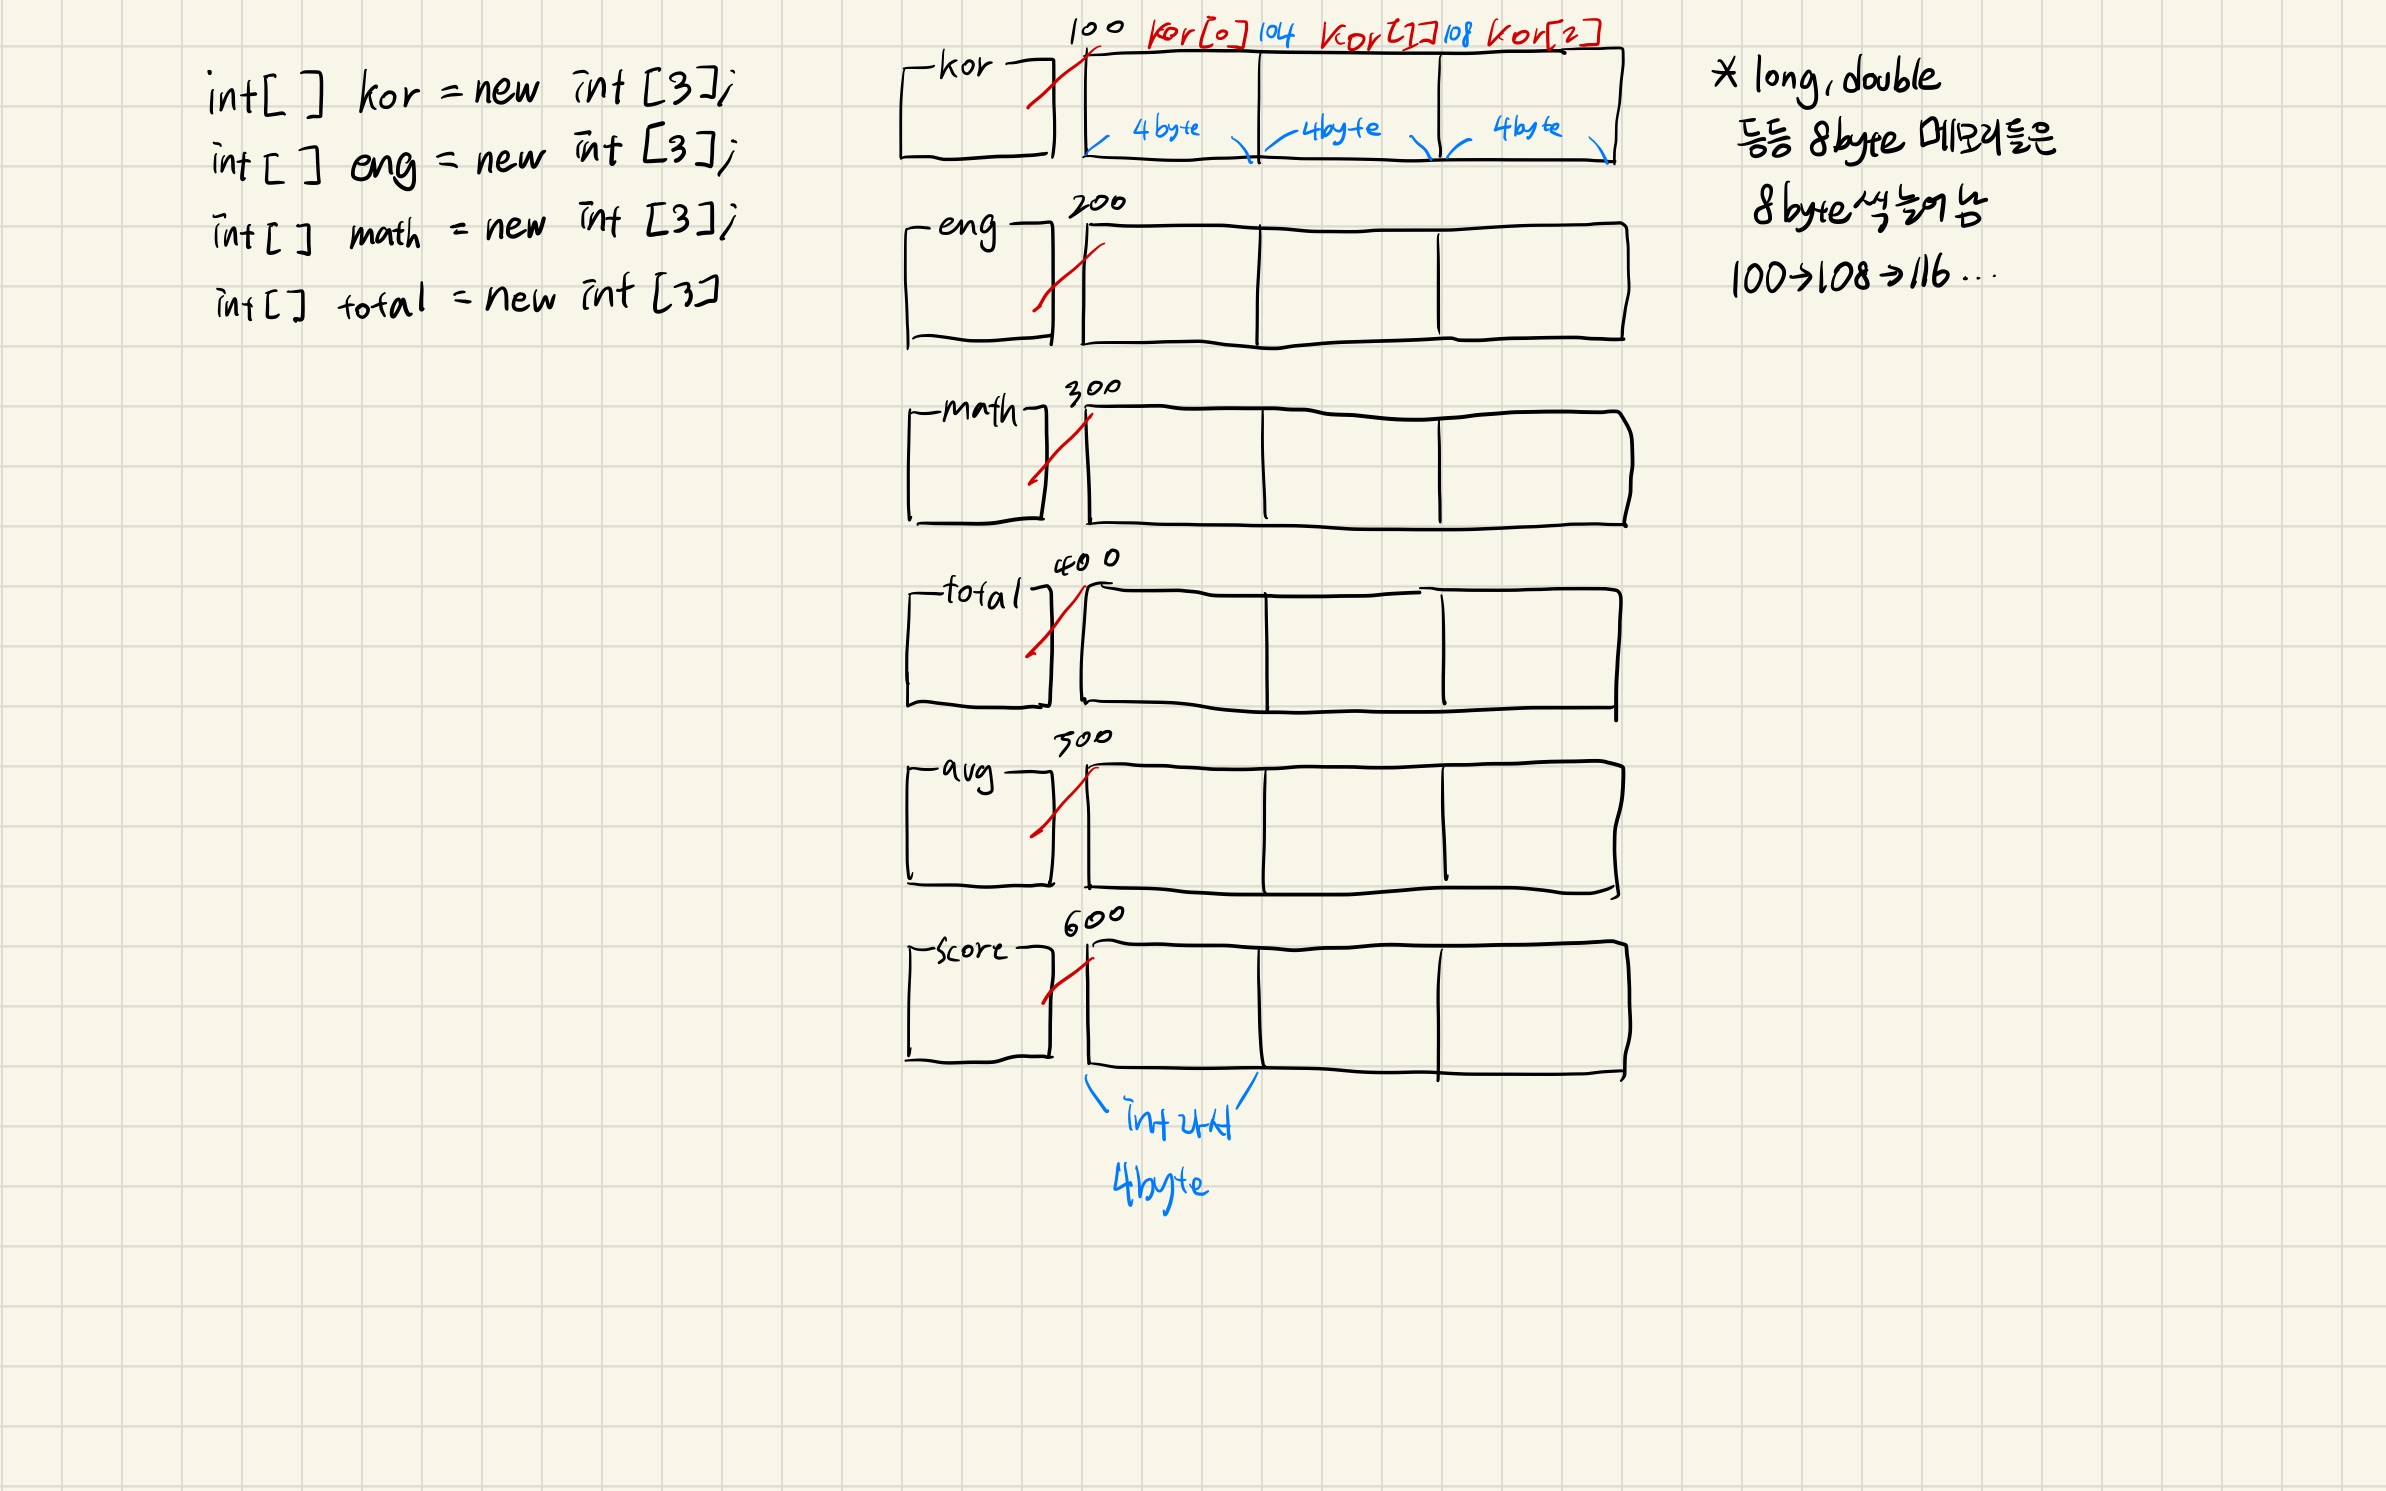 int[ ] kor = new int [3];
int[ ] eng = new int [3];
int[ ] math = new int [3];
int[ ] total = new int [3]
100 kor[0] 104 kor[1] 108 kor[2]
kor
4byte 4byte 4byte
200
eng
300
math
400
total
500
avg
600
score
int라서
4byte
* long, double
등등 8byte 메모리들은
8byte씩 늘어남
100→108→116 ...